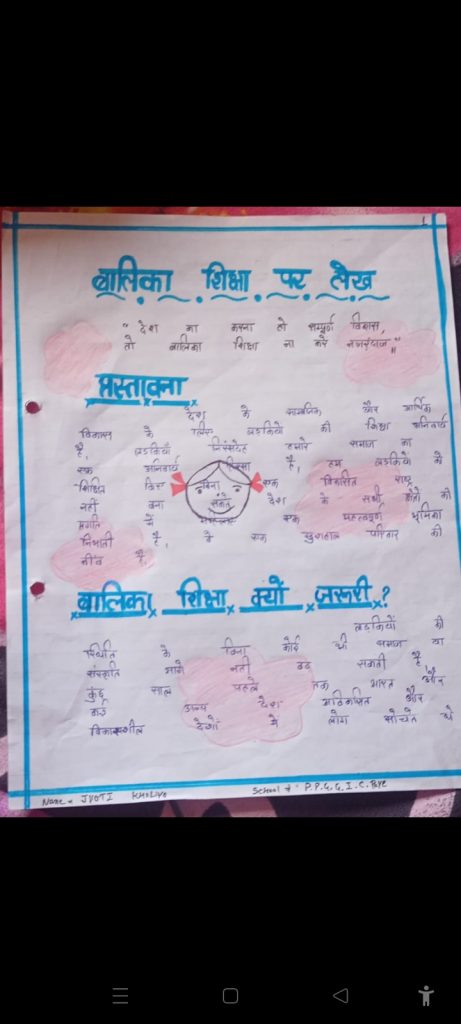 1
बालिका शिक्षा पर लेख
"देश का करना हो सम्पूर्ण विकास,
तो बालिका शिक्षा ना करे नजरंदाज"
प्रस्तावना
देश के सामाजिक और आर्थिक
विकास के लिए लड़कियों की शिक्षा अनिवार्य
है, लड़कियाँ निसंदेह हमारे समाज का
एक अनिवार्य हिस्सा है, हम लड़कियों को
शिक्षित किए बिना एक विकसित राष्ट्र
नहीं बना सकते देश के सभी क्षेत्रों की
प्रगति में एक महत्वपूर्ण भूमिका
निभाती है, वे एक खुशहाल परिवार की
नींव है,
बालिका शिक्षा क्यों जरूरी?
लड़कियों की
स्थिति के बिना कोई भी समाज या
संस्कृति आगे नहीं बढ सकती है
कुछ साल पहले तक भारत और
कई अन्य देश अविकसित और
विकासशील देशों में लोग सोचते थे
Name = JYOTI KHOLIYO School = P.P.G.G.I.C.